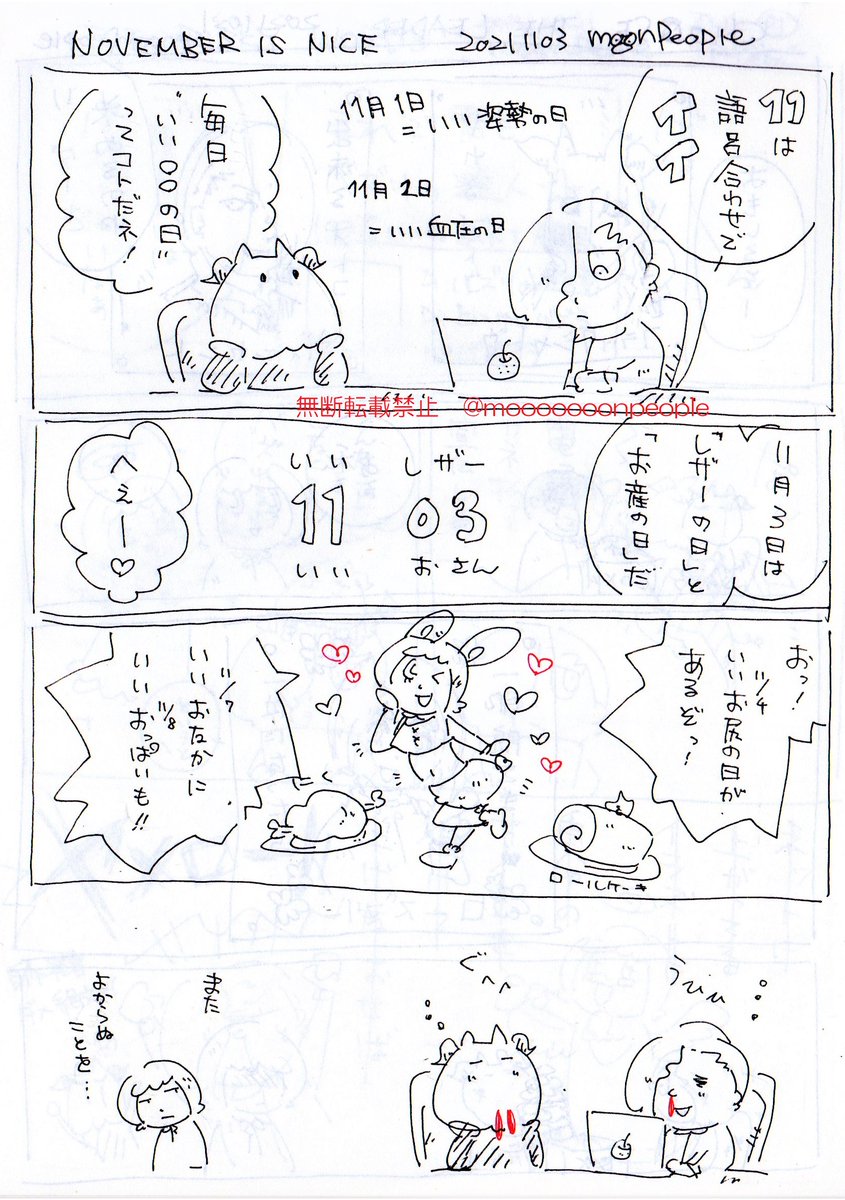 NOVEMBER IS NICE 20211103 moonpeople
11は
語呂合わせで
イイ
11月1日
=いい姿勢の日
11月2日
=いい血圧の日
毎日
"いい○○の日"
ってコトだネ!
無断転載禁止 @mooooooonpeople
11月3日は
「レザーの日」と
「お産の日」だ
いい レザー
11 03
いい おさん
へぇー♡
おっ!
11/4
いいお尻の日が
あるぞっ!
11/7
いいおなかに
11/8
いいおっぱいも!!
ロールケーキ
うひひ
ぐへへ
また
よからぬ
ことを…